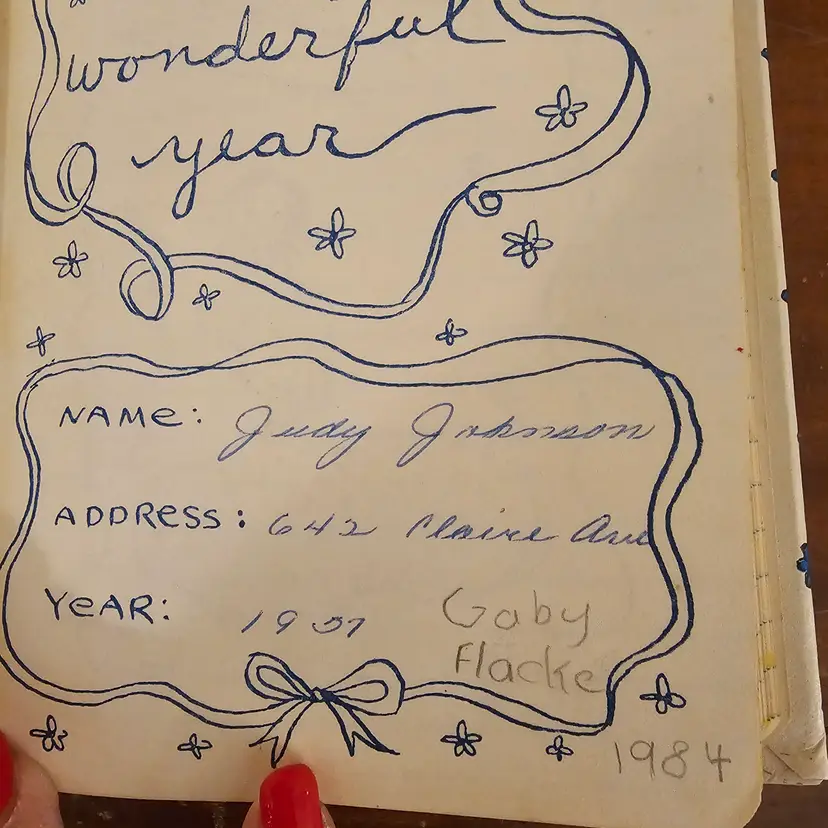 wonderful
year
NAMe: Judy Johnson
ADDRess: 642 Claire Ave
YeAR: 1957
Gaby
Flacke
1984